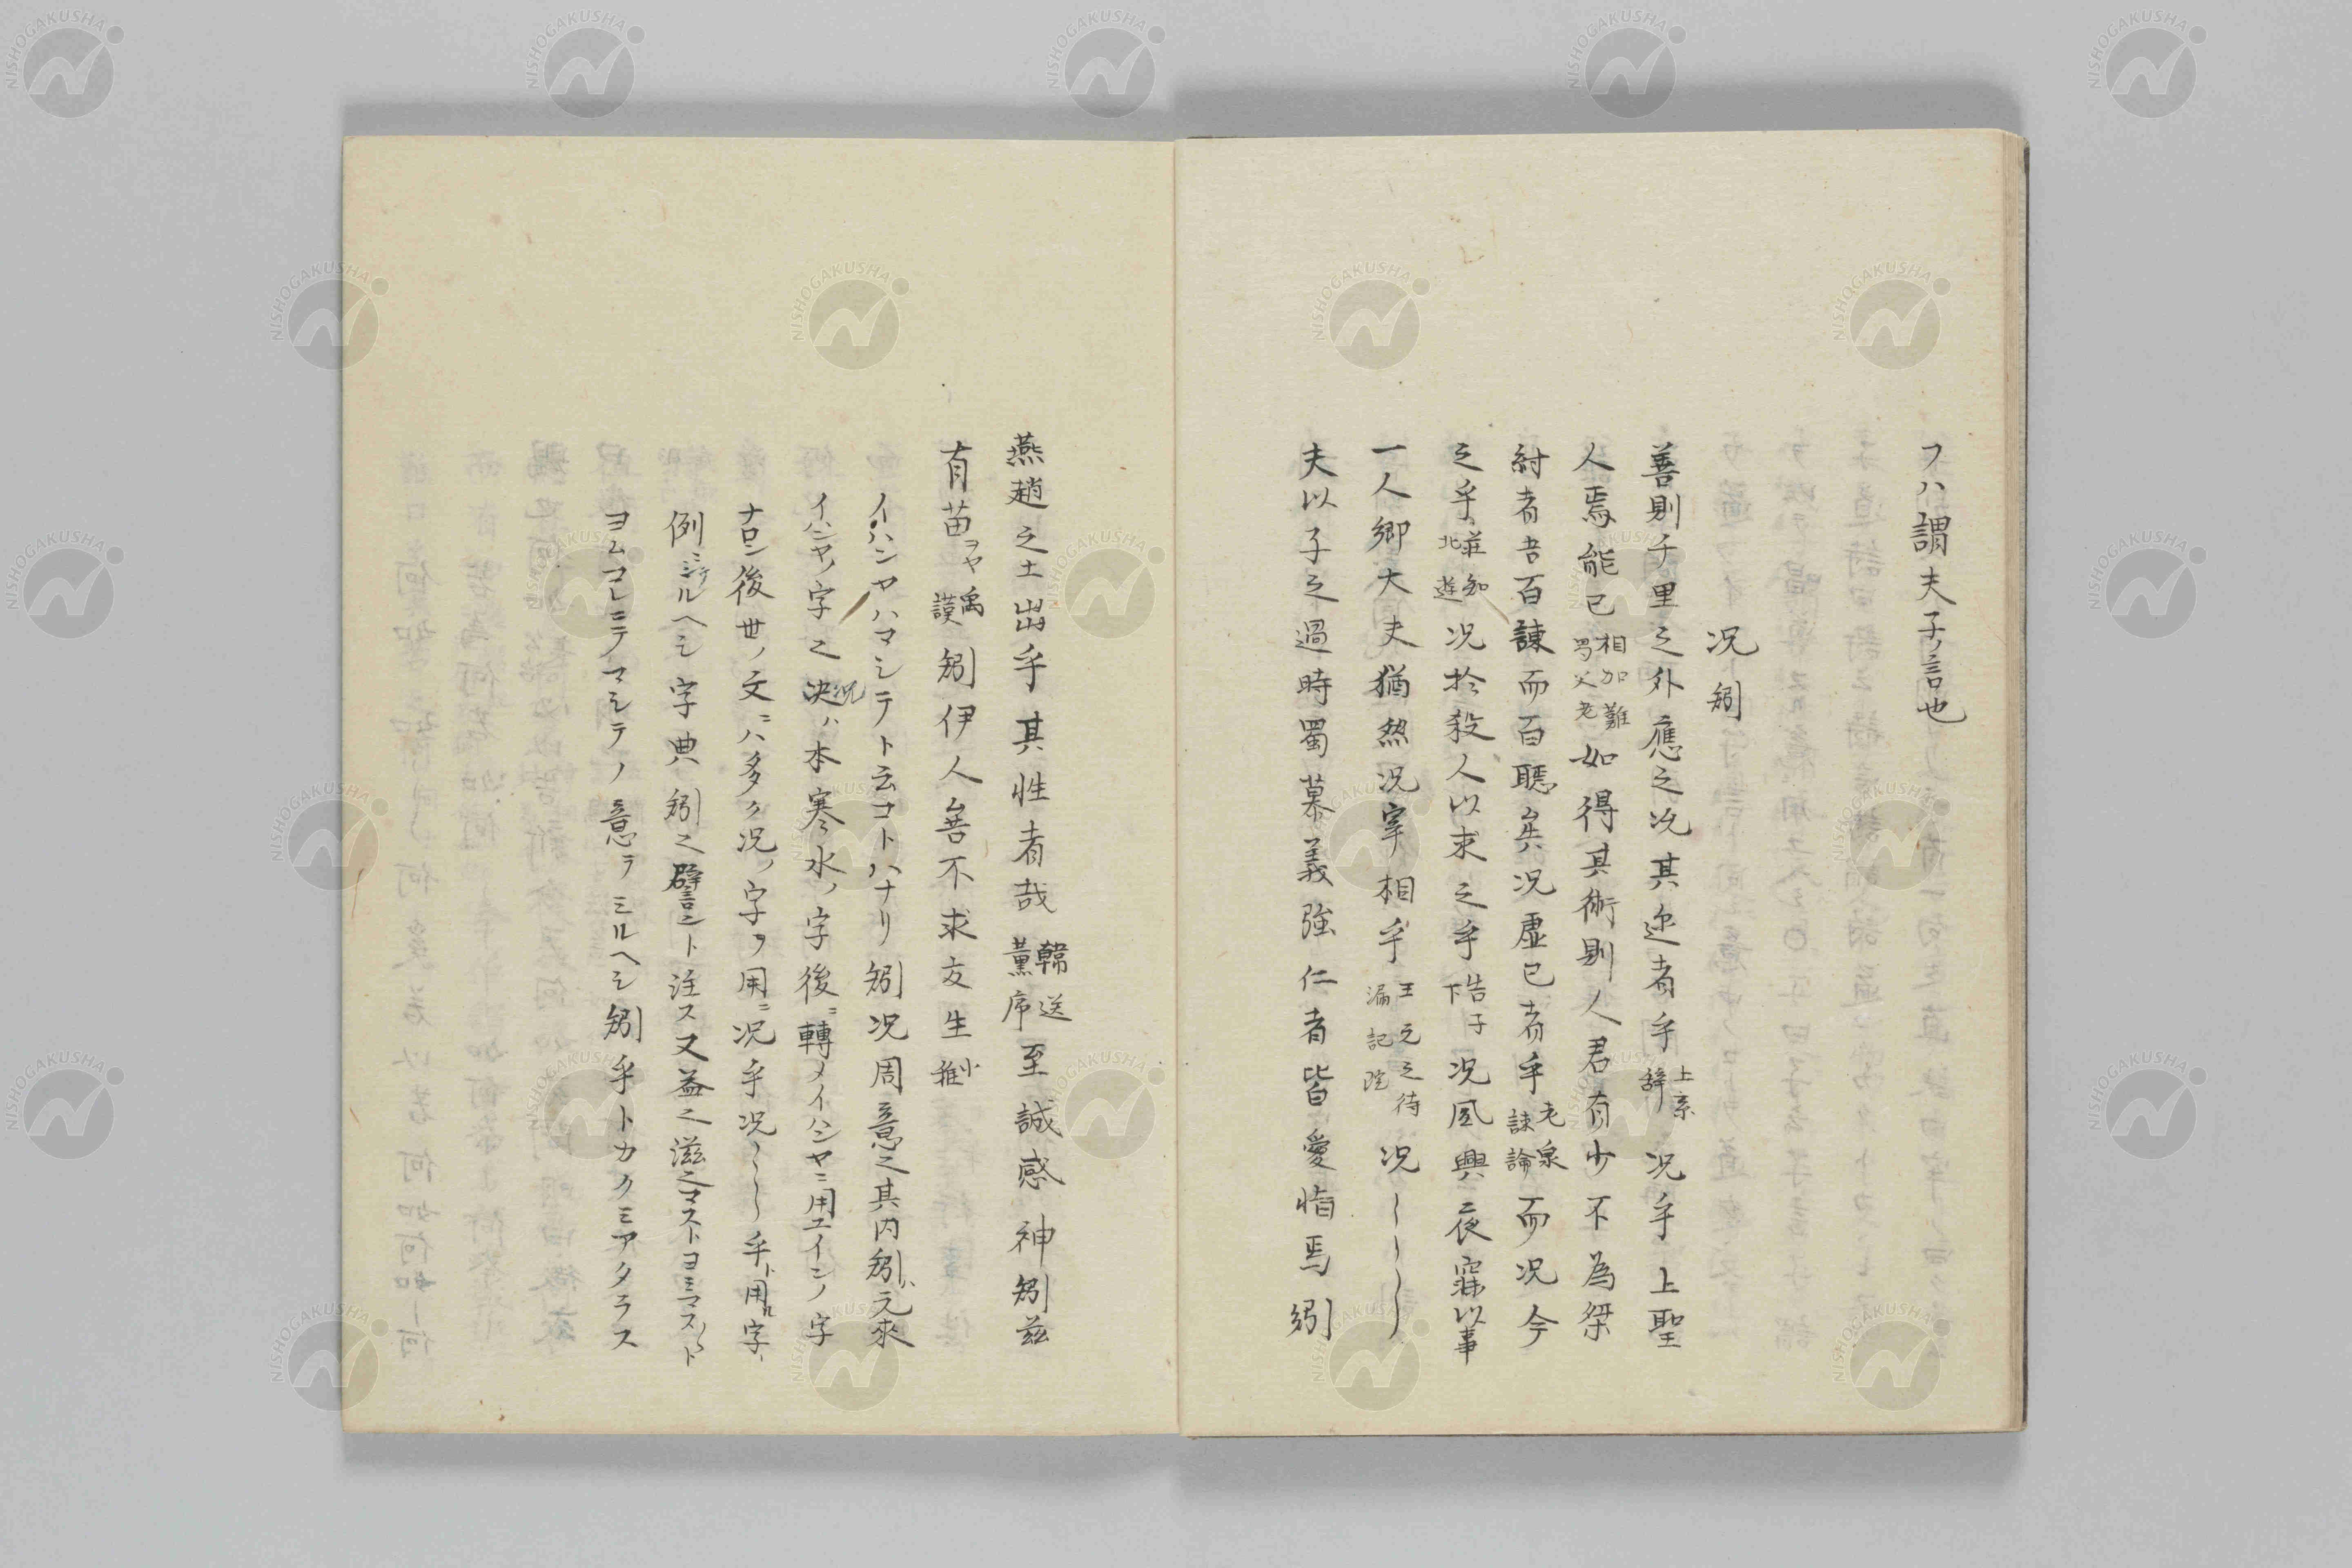 フハ謂夫子ノ言也
况矧
善則千里之外應之况其迩者乎上系辞况乎上聖
人焉能已相如難蜀父老如得其術則人君有少不為桀
紂者吉百諫而百聽矣况虚已者乎老泉諌論而况今
之乎莊知北遊况於殺人以求之乎告子下况夙興夜寐以事
一人卿大夫猶然况宰相乎王元之待漏記院况〻〻〻〻
夫以子之過時蜀慕義強仁者皆愛惜焉矧
燕趙之士出乎其性者哉韓送董序至誠感神矧茲
有苗ヲヤ禹謨矧伊人無不求友生小雅
イハンヤハマシテト云コトハナリ矧况周意之其内矧ハ元來
イハンヤノ字之决况ハ本寒水ノ字後ニ轉メイハンヤニ用ユインノ字
ナロン後世ノ文ニハ多ク况ノ字ヲ用ニ况乎况〻〻〻乎ト用ル字
例ミテルヘシ字典矧之譬言ント注ス又益之滋之マストヨミマス〳〵ト
ヨムコレニテマシテノ意ヲミルヘシ矧乎トカクミアタラス
NISHOGAKUSHA